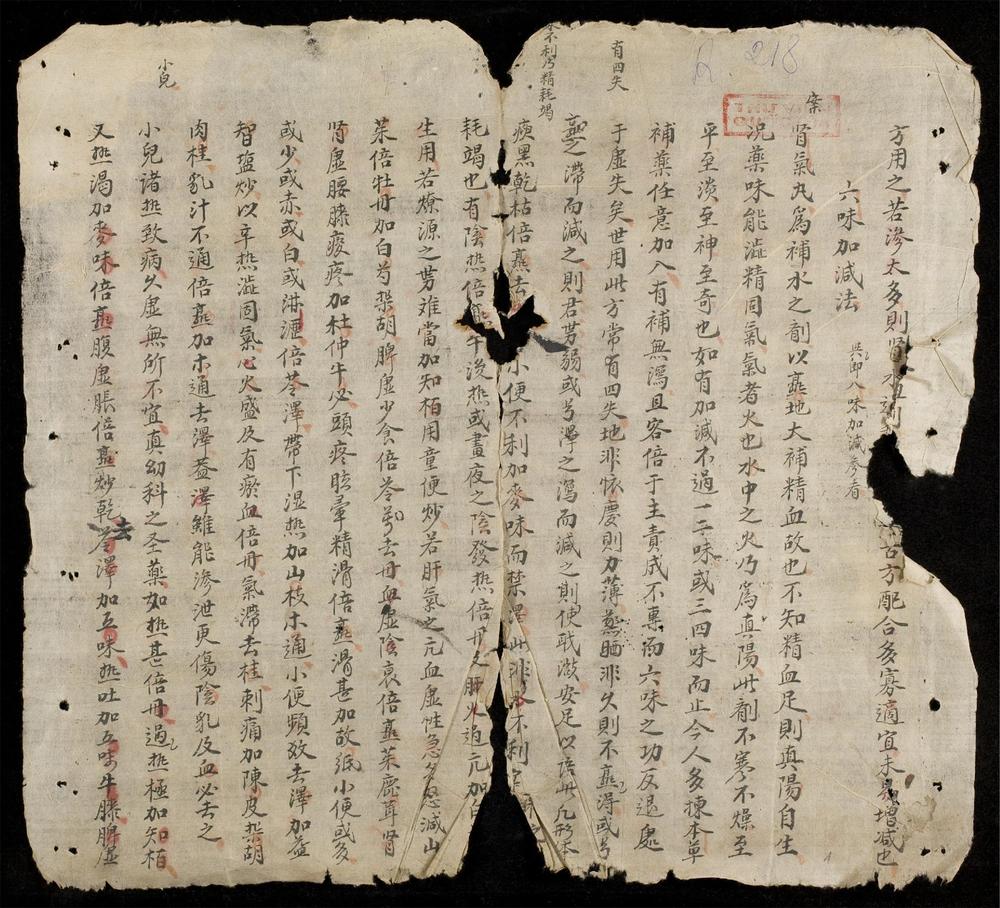 R. 218
方用之若滲太多則腎水
古方配合多寡適宜未易增减也
六味加减法
與卽八味加减參看
案
腎氣丸爲補水之劑以𤍠地大補精血故也不知精血足則真陽自生
況藥味能澁精固氣氣者火也水中之火乃爲真陽此劑不寒不燥至
平至淡至神至奇也如有加减不過一二味或三四味而止今人多揀本草
補藥任意加入有補無瀉且客倍于主責成不專而六味之功反退處
有四失
于虛失矣世用此方常有四失地非懷慶則力薄蒸晒非久則不𤍠淂或
之滯而减之則君势弱或
澤之瀉而减之則使
安足以
凡形
不利乃精耗竭
瘦黑乾枯倍𤍠去
小便不利加麥味而禁澤此非水不利
耗竭也有陰热倍
午後热或晝夜之陰發热倍
肝火過亢加白
生用若燎源之势难當加知栢用童便炒若肝氣之亢血虛性急多怒减山
茱倍牡丹加白芍柴胡脾虛少食倍苓
去丹血虛陰衰倍𤍠茱鹿茸腎
腎虛腰膝痠疼加杜仲牛必頭疼眩暈精滑倍𤍠滑甚加故紙小便或多
或少或赤或白或淋瀝倍苓澤帶下湿热加山枝木通小便頻数去澤加益
智塩炒以辛热澁固氣心火盛及有瘀血倍丹氣滞去桂刺痛加陳皮柴胡
肉桂乳汁不通倍𤍠加木通去澤盖澤雖能滲泄更傷陰乳及血必去之
小兒
小兒諸热致病久虛無所不宜真幼科之圣藥如热甚倍丹過热極加知栢
又热渴加麥味倍𤍠腹虛脹倍𤍠炒乾去苓澤加五味热吐加五味牛膝脾虛